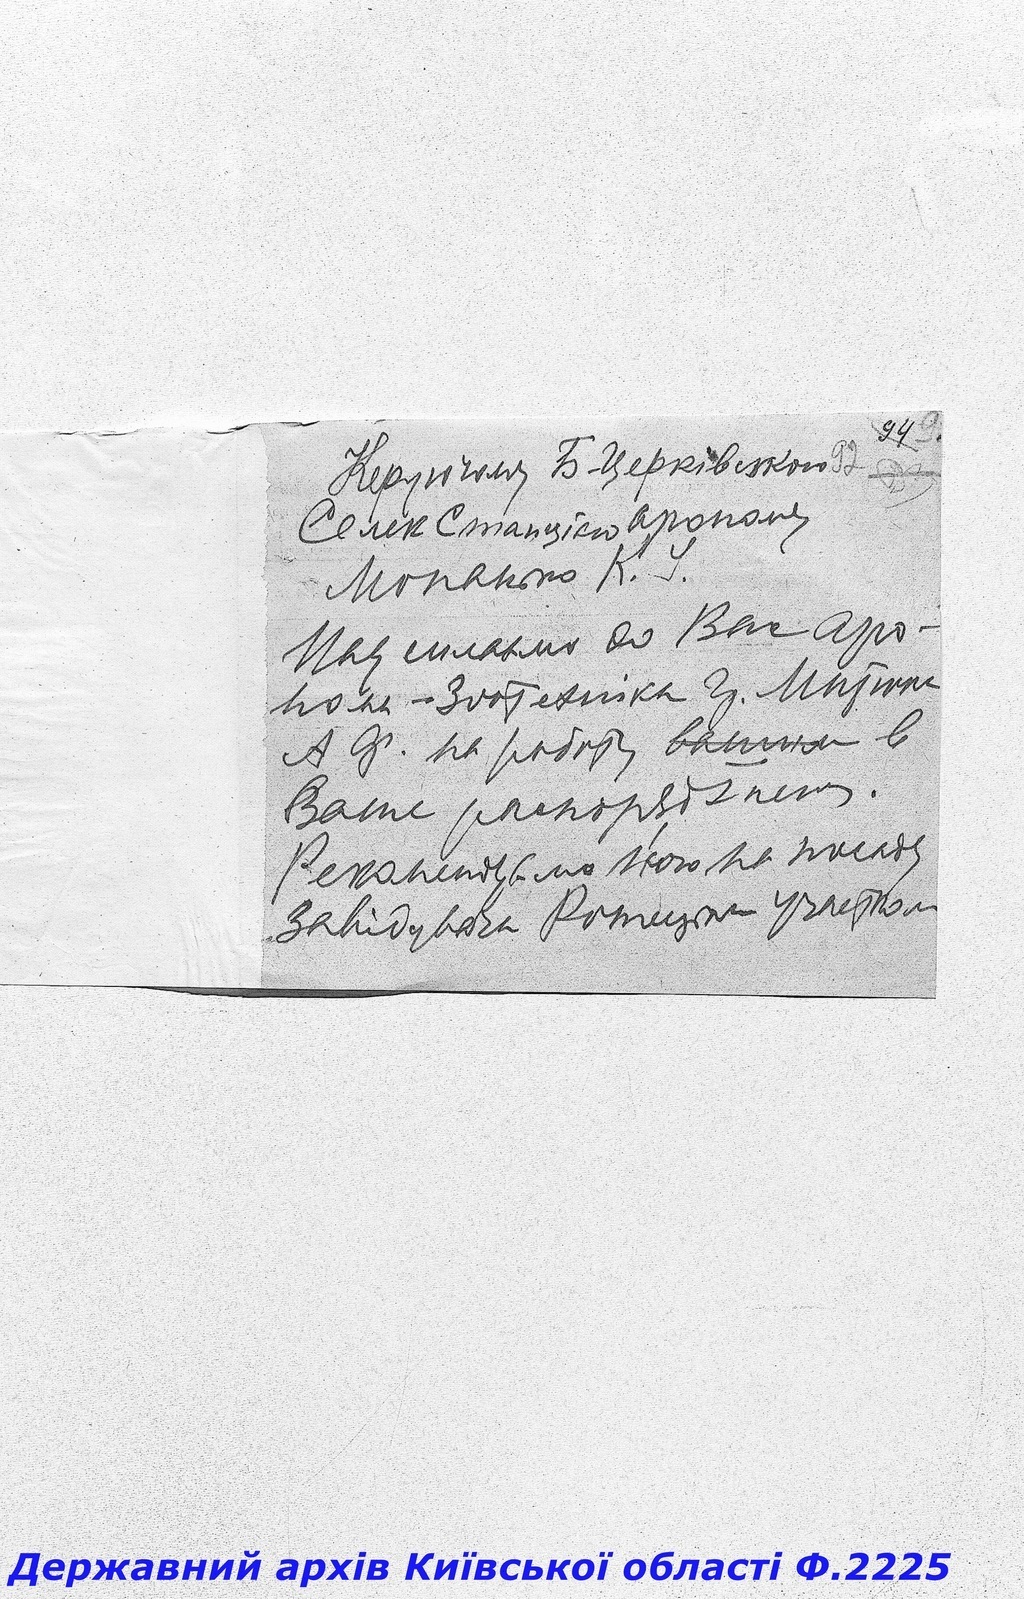 94
92
Керуючому Б-Церківською
Селек Станцією агроному
К. І.
Надсилаємо до Вас агро-
нома - Зоотехніка
А Ф. на роботу вашим в
Ваше распорядження.
Рекомендуємо його на посаду
Завідувача участком
Державний архів Київської області Ф.2225